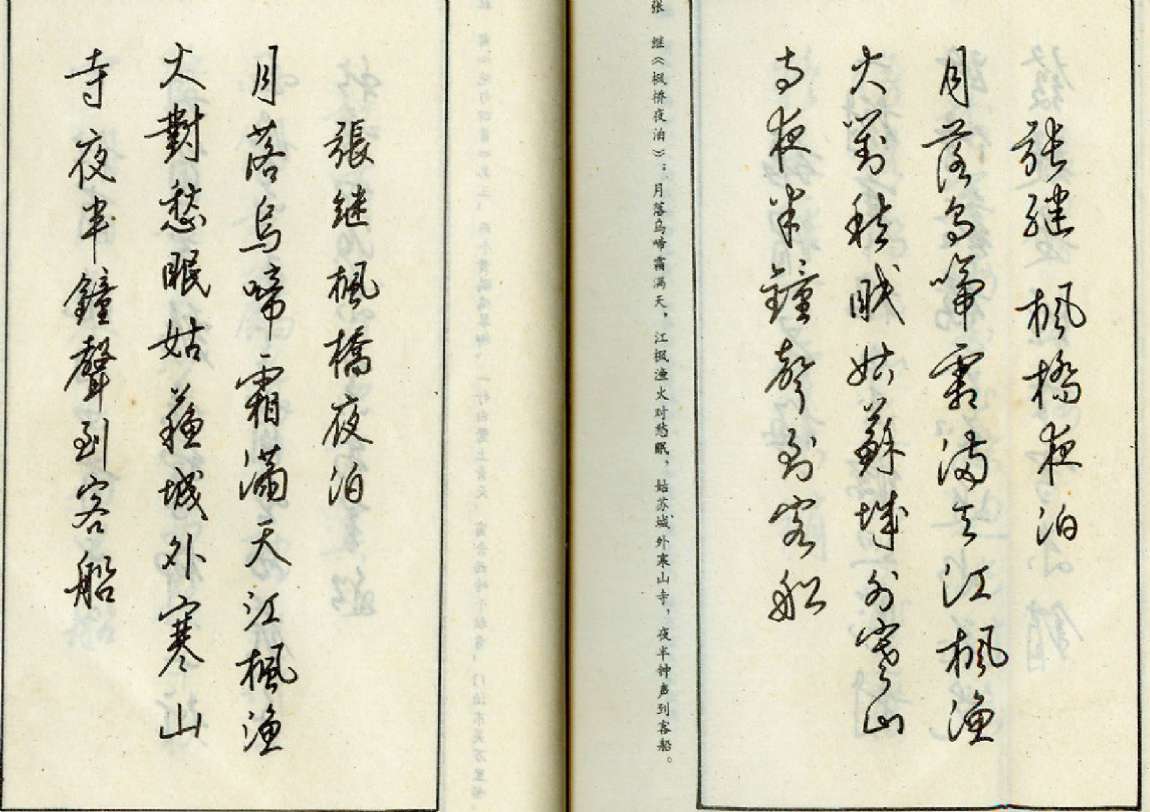 張继 楓橋夜泊
月落烏啼霜滿天江楓渔
火對愁眠姑蘇城外寒山
寺夜半鐘聲到客船
张 继《枫桥夜泊》：月落乌啼霜满天，江枫渔火对愁眠，姑苏城外寒山寺，夜半钟声到客船。
張继楓橋夜泊
月落烏啼霜滿天江楓渔
火對愁眠姑蘇城外寒山
寺夜半鐘聲到客船